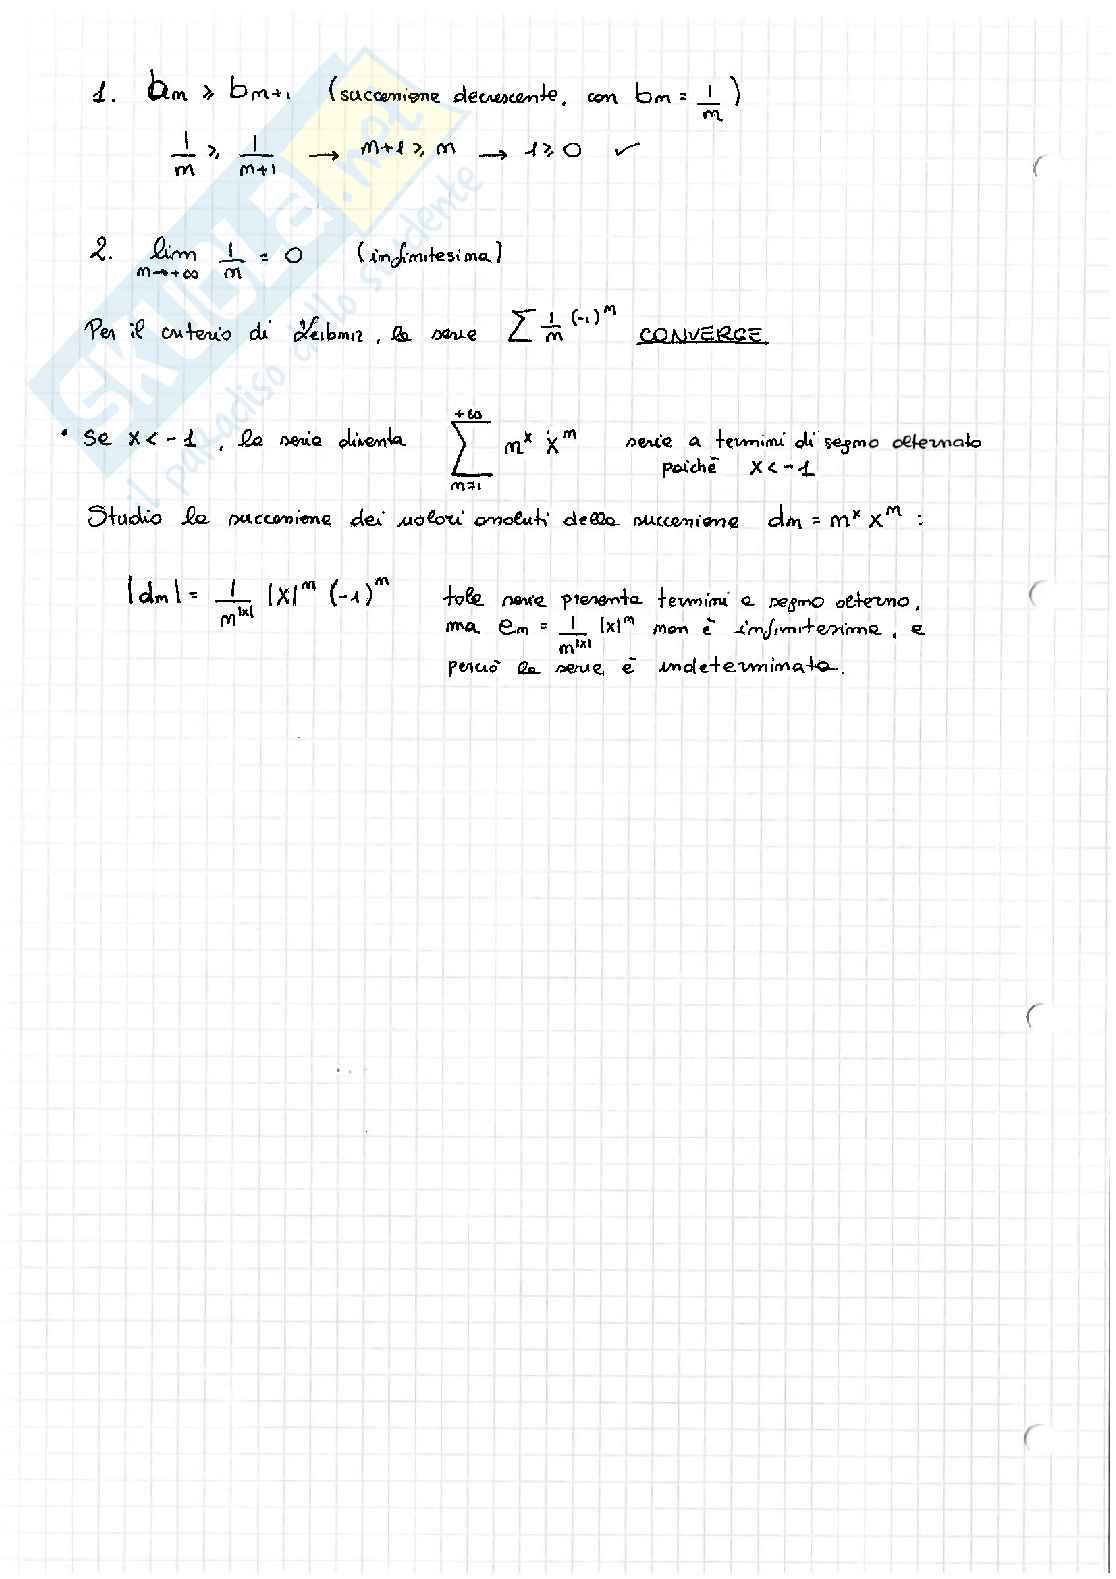 1. bn ≥ bn+1 (successione decrescente, con bn = 1/n)
1/n ≥ 1/(n+1) → n+1 ≥ n → 1 ≥ 0 ✓
2. lim n→+∞ 1/n = 0 (infinitesima)
Per il criterio di Leibniz, la serie ∑ 1/n (-1)^n CONVERGE
• Se x < -1, la serie diventa ∑ n=1 +∞ n^x x^n serie a termini di segno alternato
poichè x < -1
Studio la successione dei valori assoluti della successione dn = n^x x^n :
|dn| = 1/n^|x| |x|^n (-1)^n tale serie presenta termini a segno alterno,
ma en = 1/n^|x| |x|^n non è infinitesima, e
perciò la serie è indeterminata.
SKUOLA.net
il paradiso dello studente